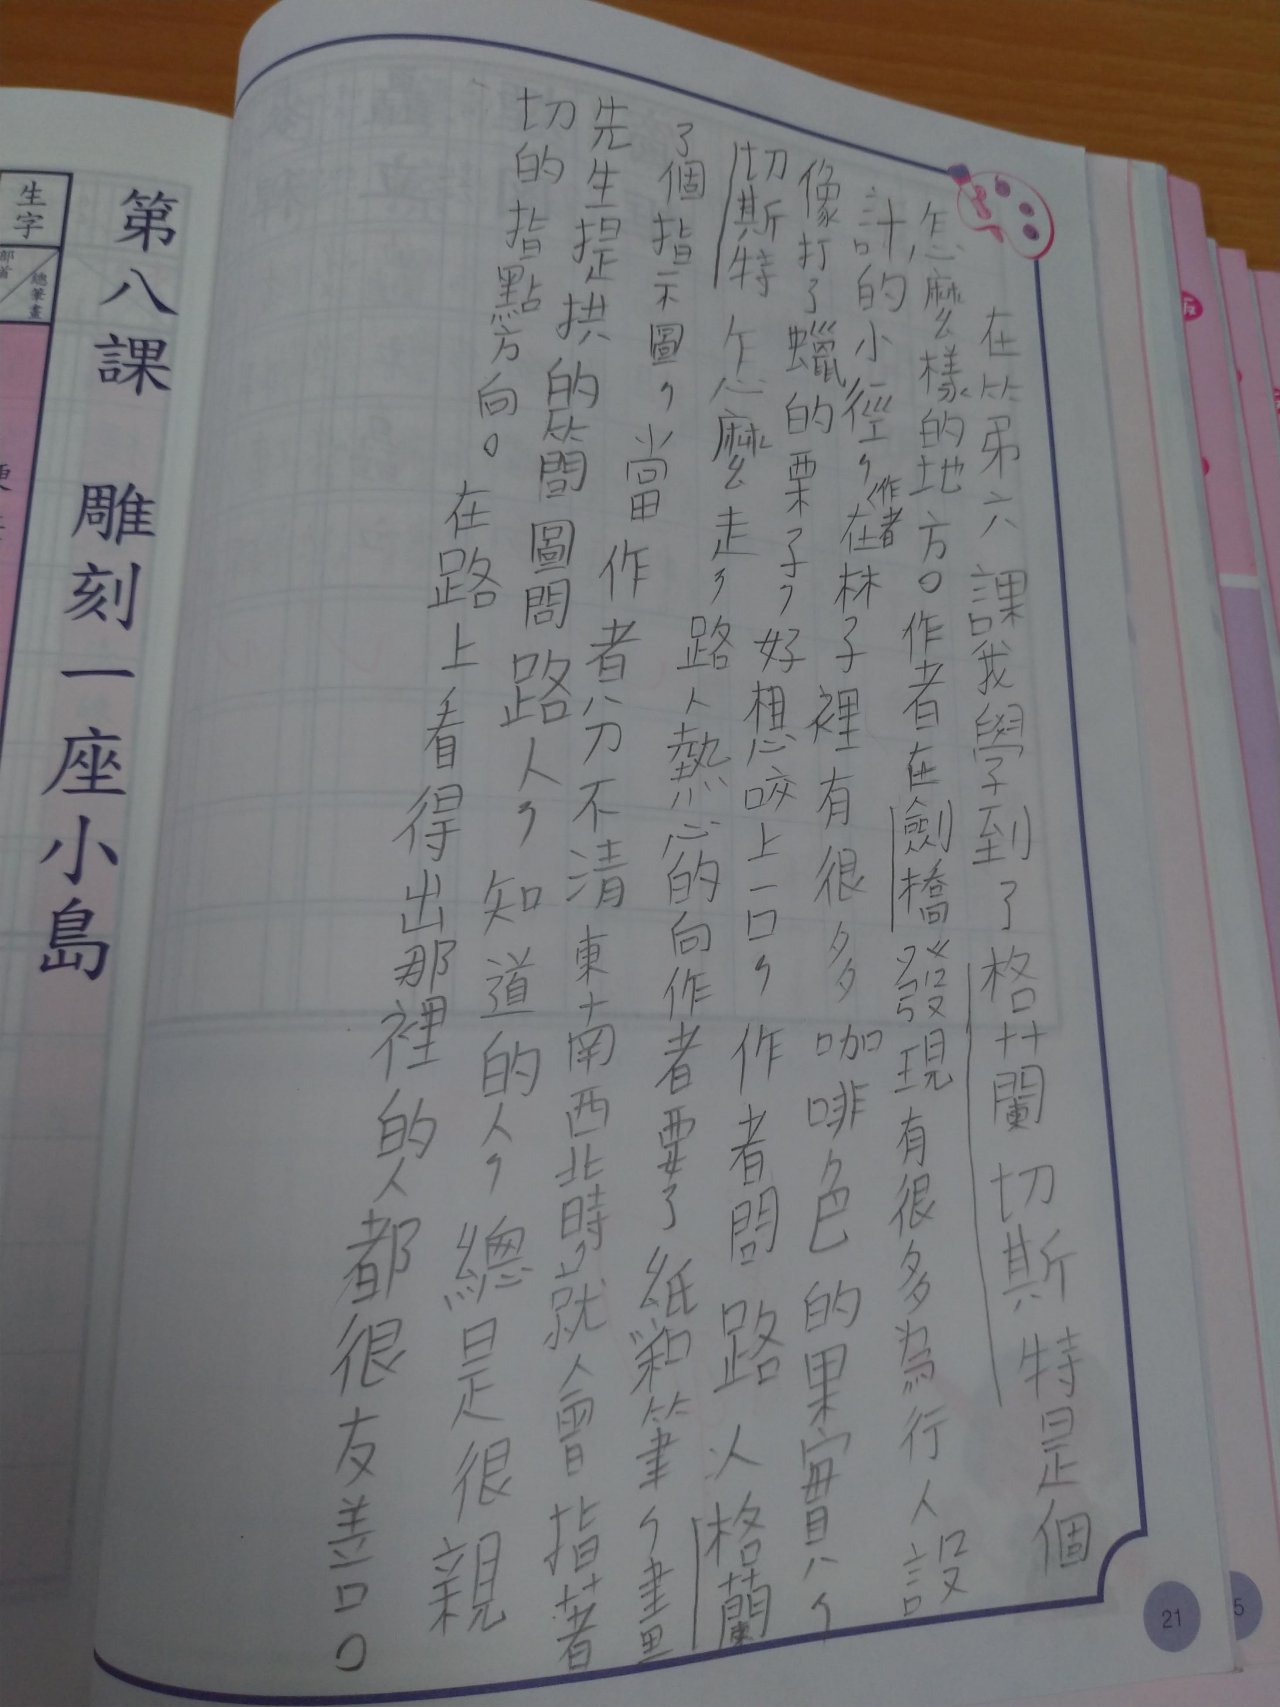 在第六課我學到了格蘭切斯特是個
怎麼樣的地方。作者在劍橋發現有很多為行人設
計的小徑，作者在林子裡有很多咖啡色的果實，
像打了蠟的栗子，好想咬上一口，作者問路人格蘭
切斯特怎麼走，路人熱心的向作者要了紙和筆，畫
了個指示圖，當作者分不清東南西北時，就會指著
先生提拱的簡圖問路人，知道的人，總是很親
切的指點方向。在路上看得出那裡的人都很友善。
21
第八課 雕刻一座小島
生字
部首
總筆畫
5